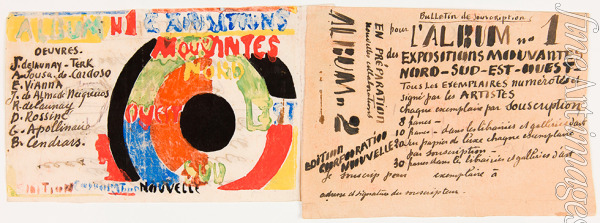 ALBUM N1 EXPOSITIONS
MOUVANTES
NORD
OUEST
EST
SUD
OEUVRES.
S. delaunay-Terk
A. Sousa. de Cardoso
E. Vianna
J. de Almad. Negreiros
R. delaunay
D. Rossiné
G. Apollinaire
B. Cendrars.
EDITION CORPORATION NOUVELLE
ALBUM nº 2
EN PRÉPARATION
nouvelles collaborations
EDITION CORPORATION
NOUVELLE
Bulletin de Souscription
pour L'ALBUM no 1
des EXPOSITIONS MOUVANTE
NORD-SUD-EST-OUEST
Tous les EXEMPLAIRES numérotés et
signé par les ARTISTES
chaque exemplaire par souscription
8 francs-
10 francs-dans les librairies et galleries d'art
20 en papier de luxe chaque exemplaire
par souscription-
30 francs dans les librairies et galleries d'art
Je souscris pour exemplaire à
adresse et signature du souscripteur.